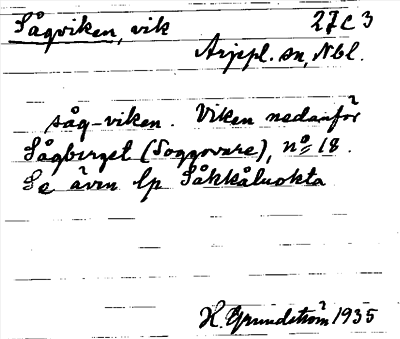 Sågviken, vik 27C3
Arjepl. sn, Nbl.
såg-viken. Viken nedanför
Sågberget (Soggovare), nº 18.
Se även lp Såkkåluokta
H. Grundström 1935